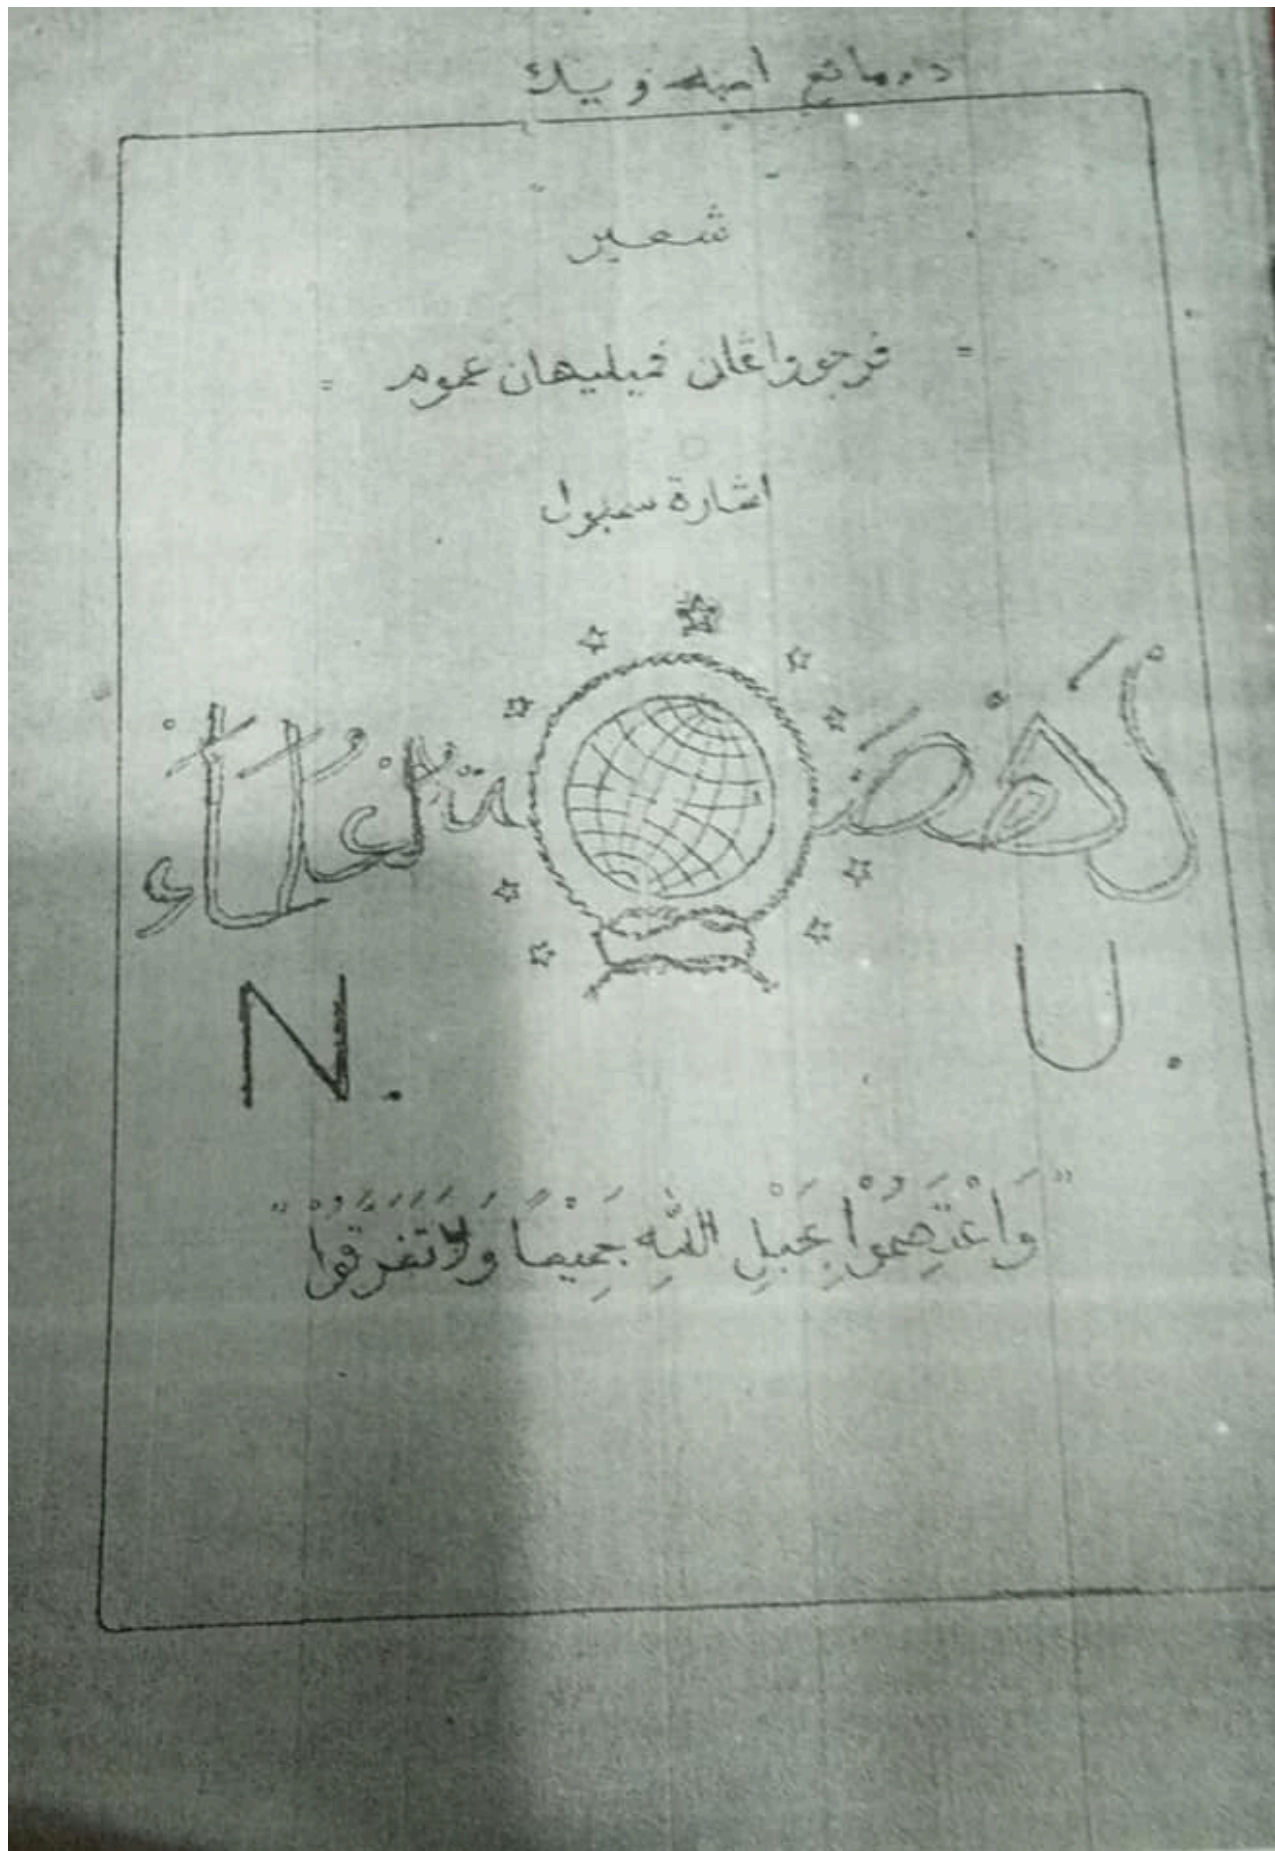 شعير
= فرجوواڠان فميليهان عموم =
اشارة سمبول
نَهْضَةُ الْعُلَمَاءْ
N. U.
"وَاعْتَصِمُوْا بِحَبْلِ اللهِ جَمِيْعًا وَلَا تَفَرَّقُوْا"